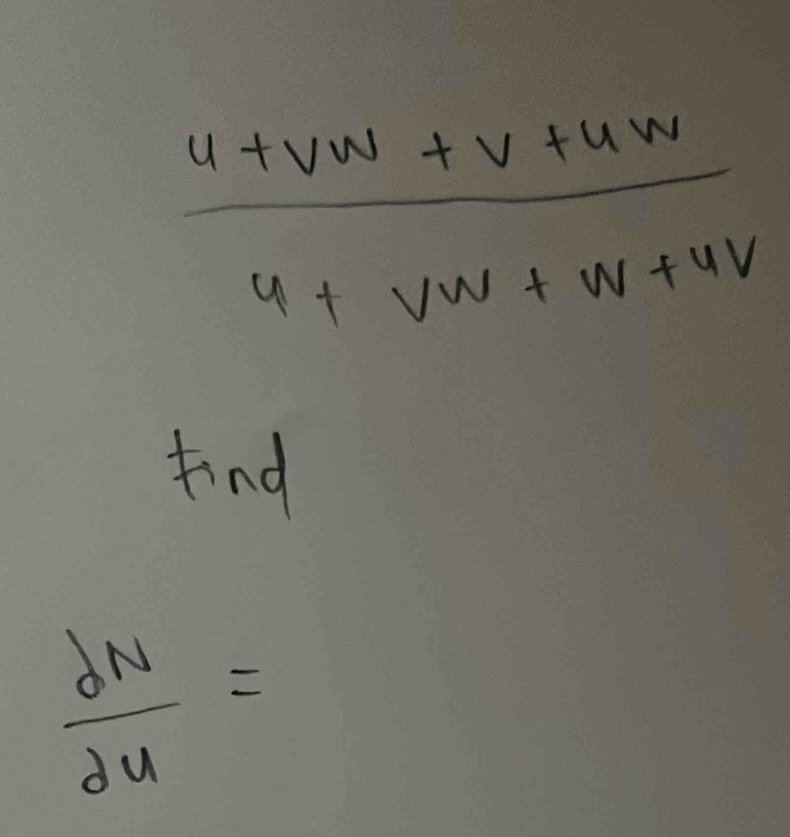 u + vw + v + uw
u + vw + w + uv
find
∂N
∂u =